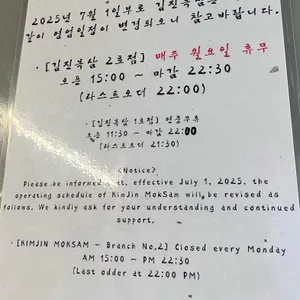 2025년 7월 1일부로 김진목삼은
같이 영업일정이 변경되오니 참고바랍니다.
· [김진목삼 2호점] 매주 월요일 휴무
오픈 15:00 ~ 마감 22:30
(라스트오더 22:00)
· [김진목삼 1호점] 연중무휴
오픈 11:30 ~ 마감 22:00
(라스트오더 21:30)
<Notice>
Please be informed that, effective July 1, 2025, the
operating schedule of KimJin MokSam will be revised as
follows. We kindly ask for your understanding and continued
support.
· [KIMJIN MOKSAM - Branch No.2] Closed every Monday
AM 15:00 ~ PM 22:30
(Last odder at 22:00 PM)